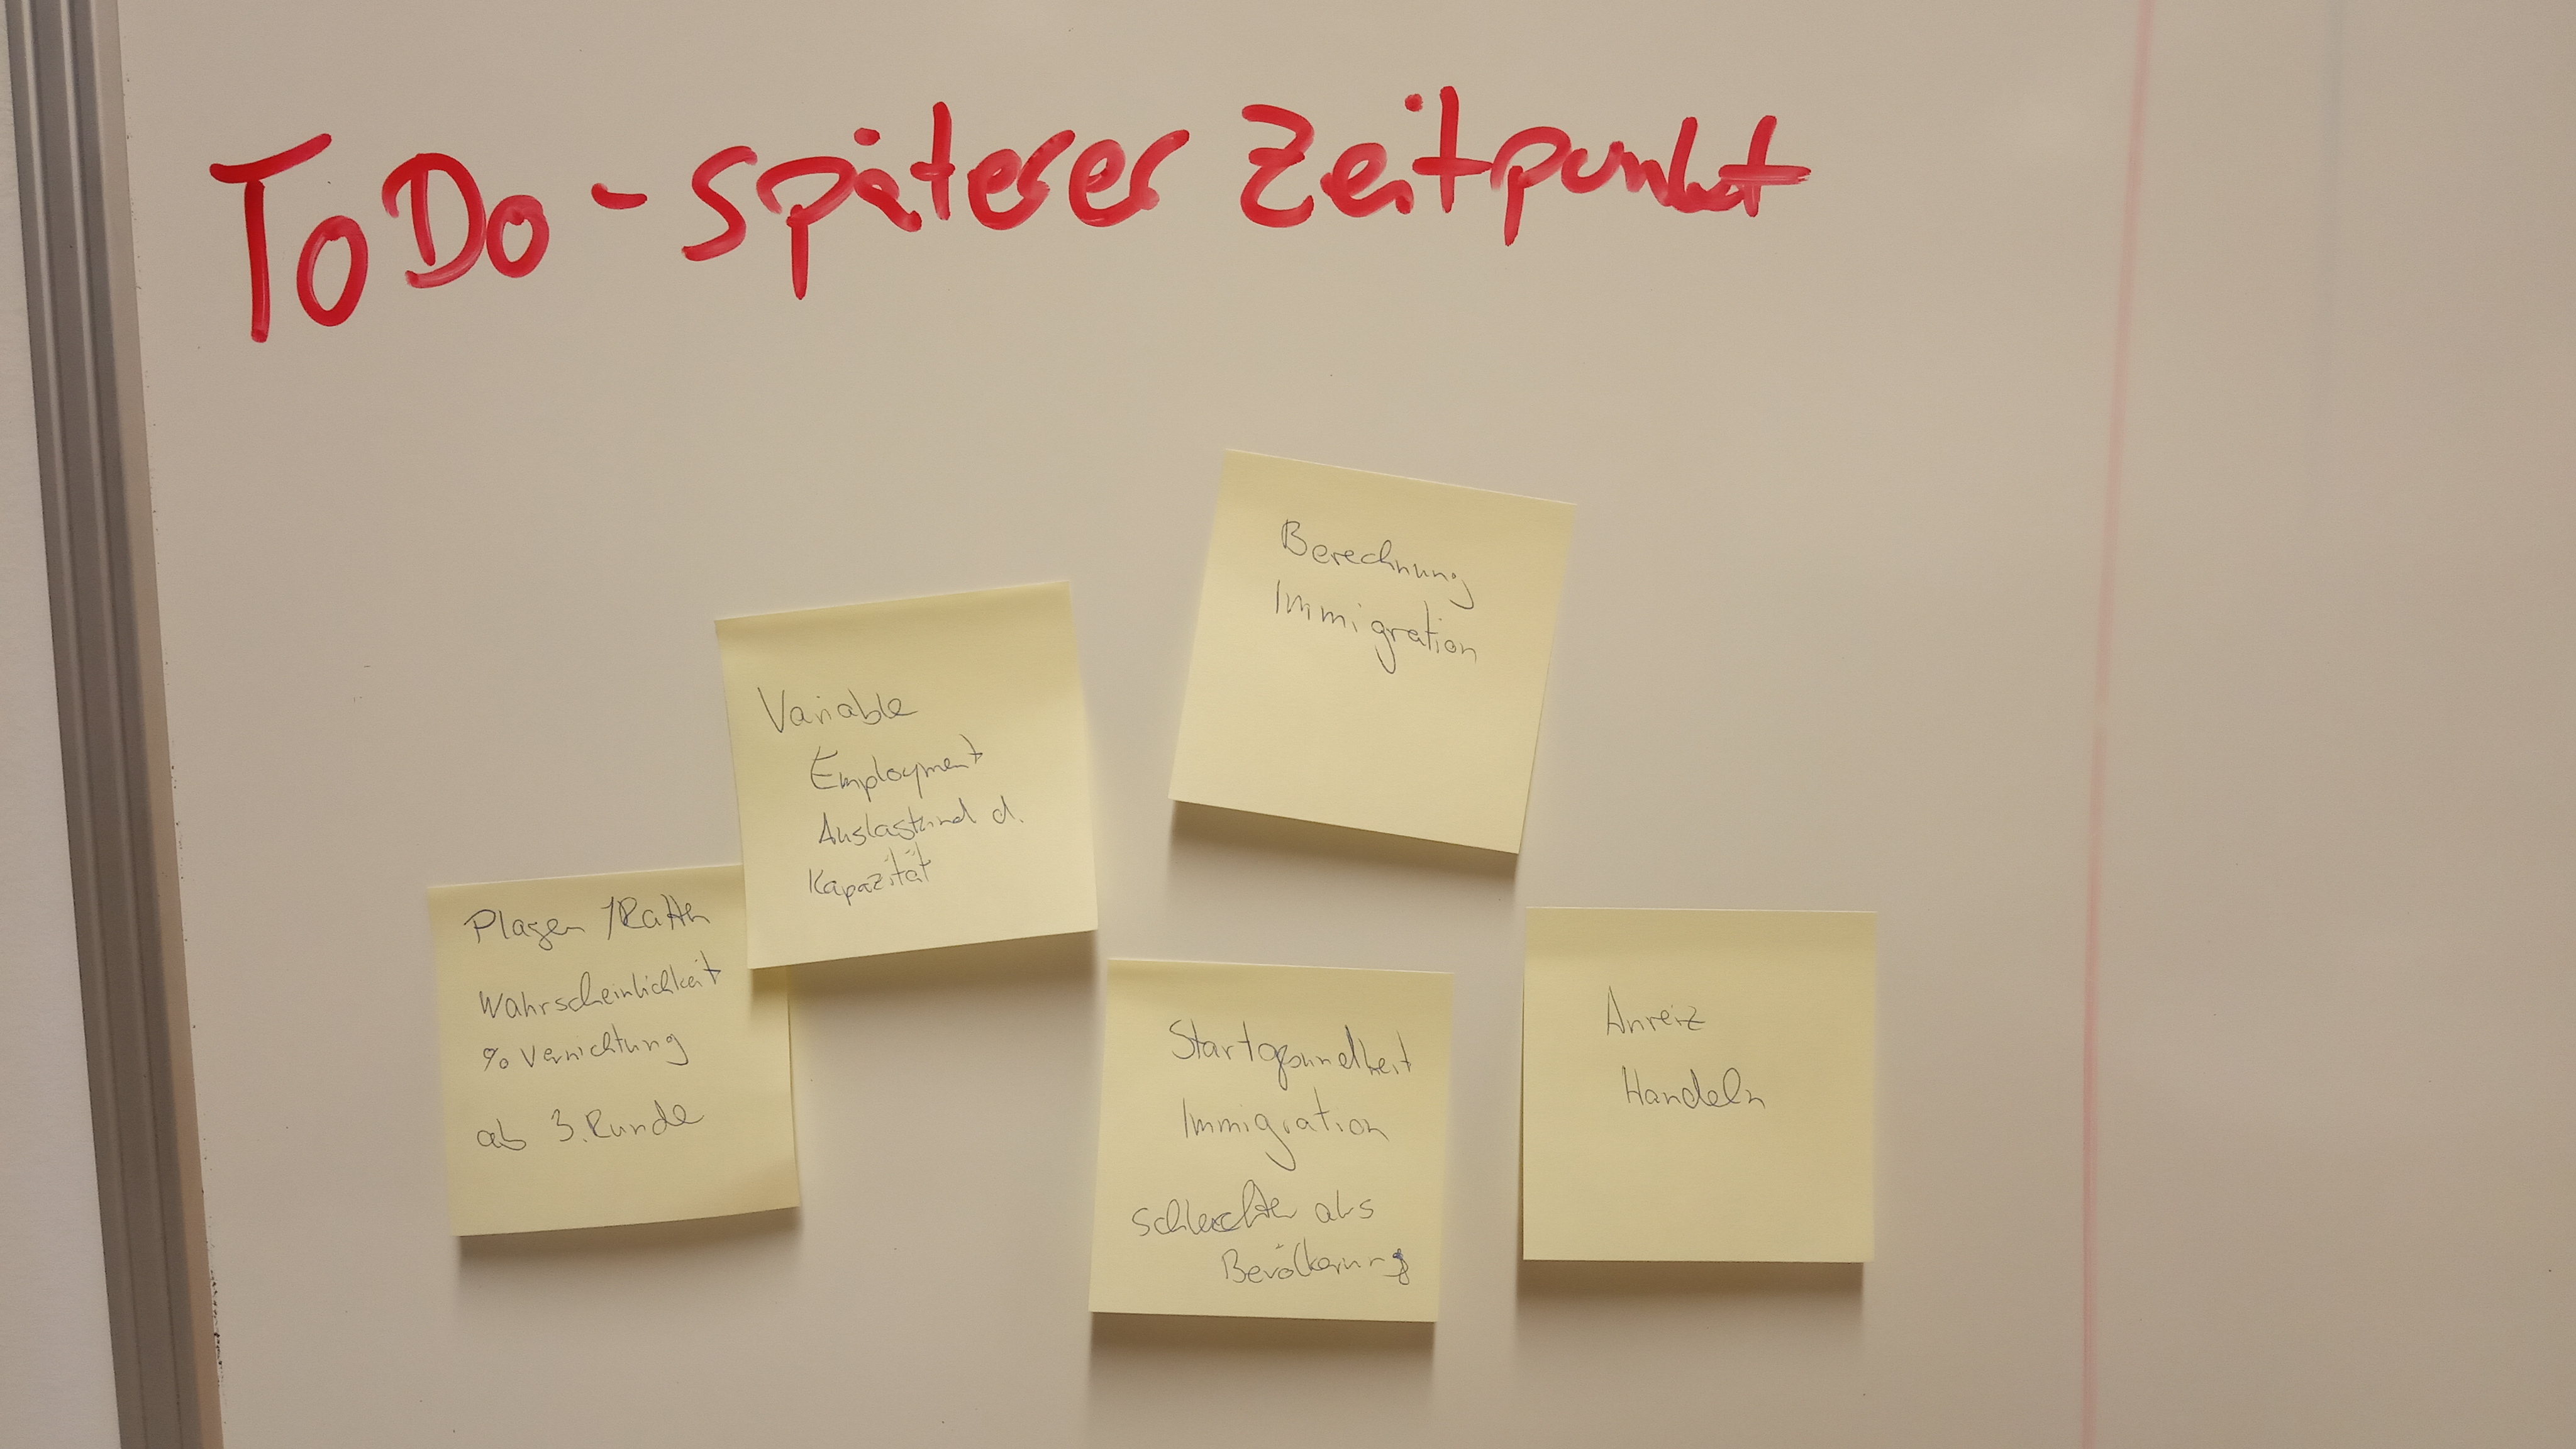 ToDo - späterer Zeitpunkt
Berechnung
Immigration
Variable
Employment
Auslastund d.
Kapazität
Plagen / Ratten
Wahrscheinlichkeit
% Vernichtung
ab 3. Runde
Startgesundheit
Immigration
schlechter als
Bevölkerung
Anreiz
Handeln